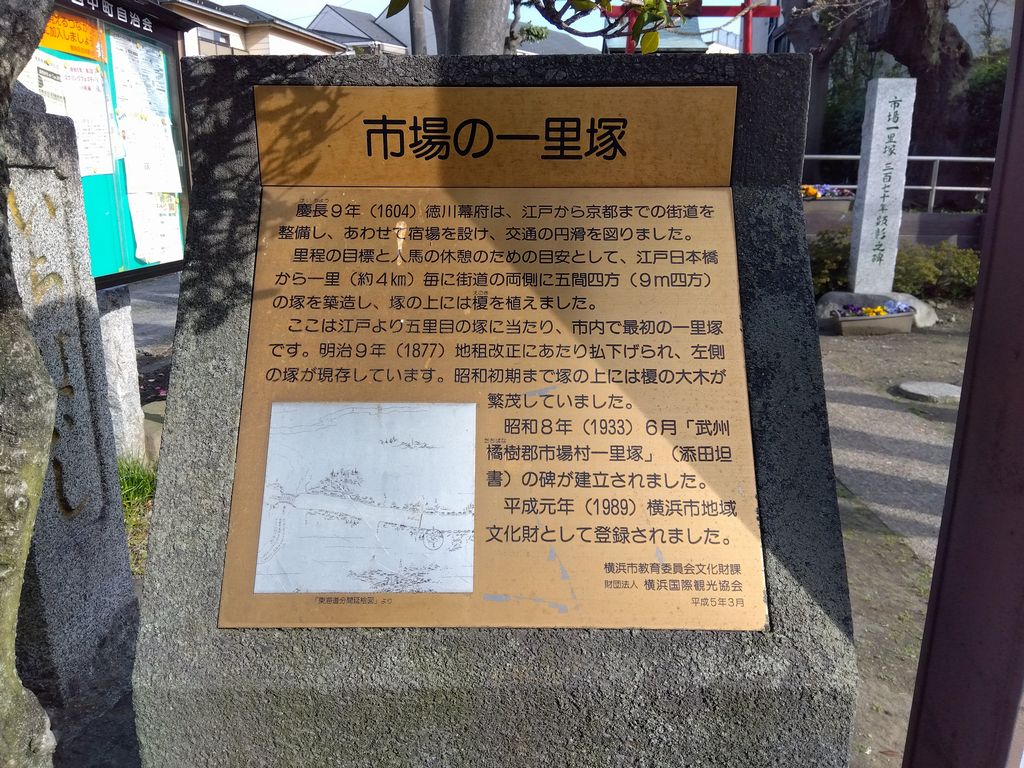 中町自治会
市場の一里塚
けいちょう
慶長9年（1604）徳川幕府は、江戸から京都までの街道を
整備し、あわせて宿場を設け、交通の円滑を図りました。
里程の目標と人馬の休憩のための目安として、江戸日本橋
から一里（約4km）毎に街道の両側に五間四方（9m四方）
えのき
の塚を築造し、塚の上には榎を植えました。
ここは江戸より五里目の塚に当たり、市内で最初の一里塚
です。明治9年（1877）地租改正にあたり払下げられ、左側
の塚が現存しています。昭和初期まで塚の上には榎の大木が
繁茂していました。
昭和8年（1933）6月「武州
たちばな
橘樹郡市場村一里塚」（添田坦
書）の碑が建立されました。
平成元年（1989）横浜市地域
文化財として登録されました。
横浜市教育委員会文化財課
財団法人 横浜国際観光協会
平成5年3月
「東海道分間延絵図」より
市場一里塚 三百七十年敬彰之碑